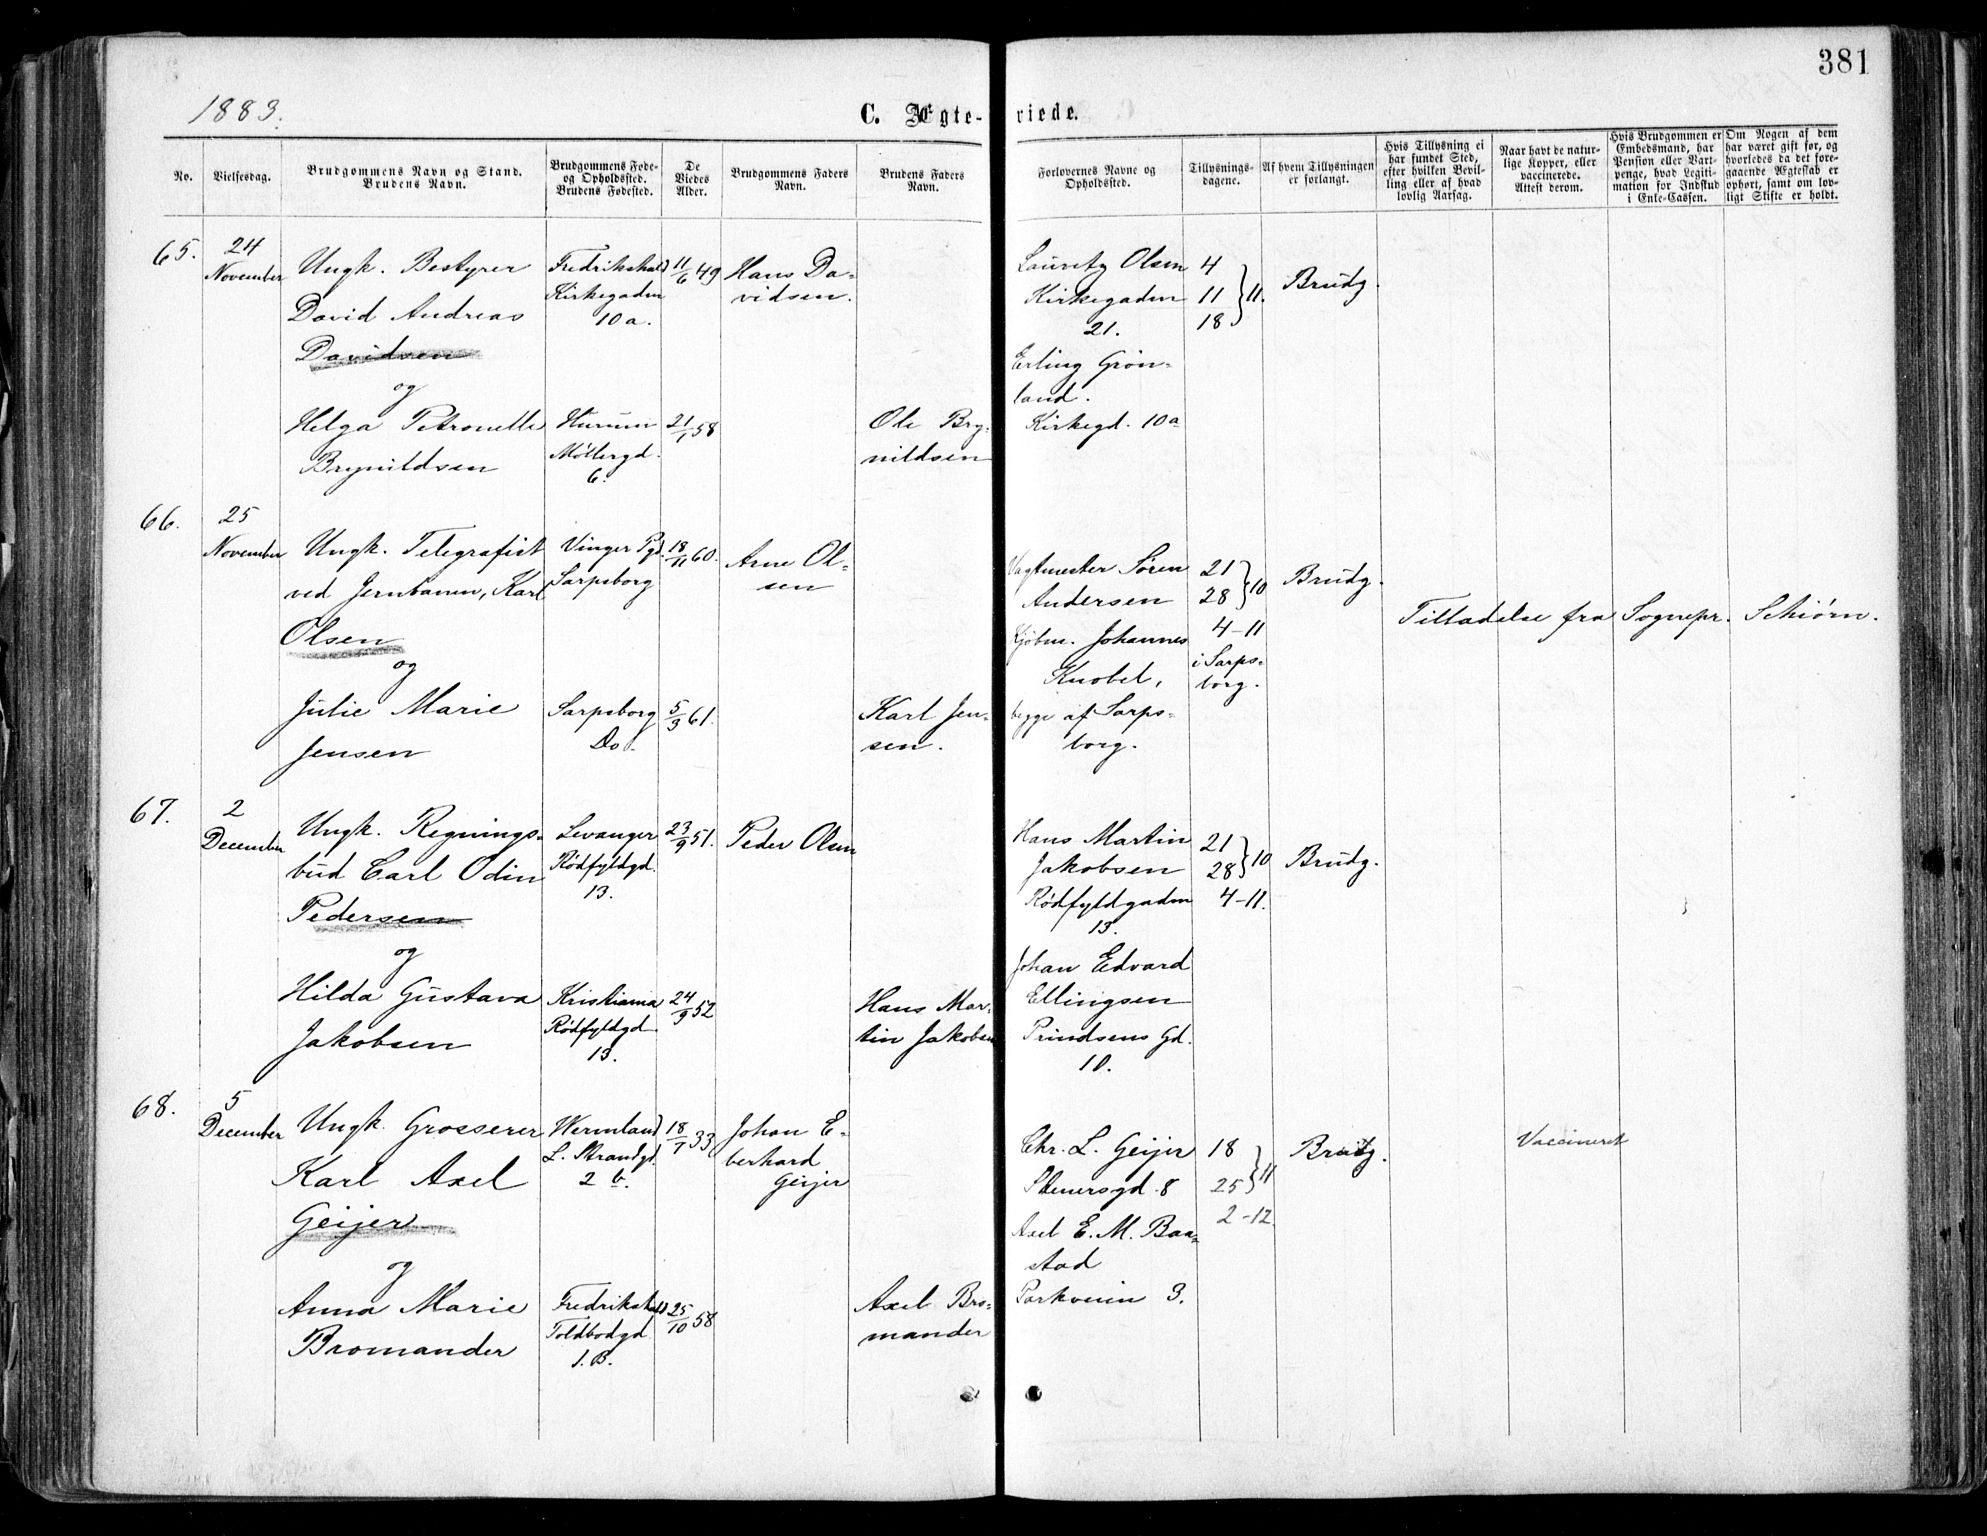 381
1883.
C. Ægte-viede.
No.
Vielsesdag.
Brudgommens Navn og Stand.
Brudens Navn.
Brudgommens Føde-
og Opholdssted.
Brudens Fødested.
De
Viedes
Alder.
Brudgommens Faders
Navn.
Brudens Faders
Navn.
Forlovernes Navne og
Opholdssted.
Tillysnings-
dagene.
Af hvem Tillysningen
er forlangt.
Hvis Tillysning ei
har fundet Sted,
efter hvilken Bevil-
ling eller af hvad
lovlig Aarsag.
Naar havt de natur-
lige Kopper, eller
vaccinerede.
Attest derom.
Hvis Brudgommen er
Embedsmand, har
Pension eller Vart-
penge, hvad Legiti-
mation for Indskud
i Enke-Cassen.
Om Nogen af dem
har været gift før, og
hvorledes da det fore-
gaaende Ægteskab er
ophørt, samt om lov-
ligt Skifte er holdt.
65.
24
November
Ungk. Bestyrer
David Andreas
Davidsen
og
Helga Petronelle
Brynildsen
Fredrikshald
Kirkegaden
10 a.
Hurum
Møllergd.
6.
11/6 49
21/1 58
Hans Da-
vidsen.
Ole Bry-
nildsen
Lauritz Olsen
Kirkegaden
21.
Erling Grøn-
land.
Kirkegd. 10a
4
11 } 11.
18
Brudg.
66.
25
November
Ungk. Telegrafist
ved Jernbanen, Karl
Olsen
og
Julie Marie
Jensen
Vinger Pgd.
Sarpsborg
Sarpsborg
Do.
18/11 60.
5/3 61.
Arne Ol-
sen
Karl Jen-
sen.
Vagtmester Søren
Andersen
Kjøbm. Johannes
Knobel,
begge af Sarps-
borg.
21
28 } 10
4-11
i Sarps-
borg.
Brudg.
Tilladelse fra Sognepr. Schiørn.
67.
2
December
Ungk. Regnings-
bud Carl Odin
Pedersen
og
Hilda Gustava
Jakobsen
Levanger
Rødfyldgd.
13.
Kristiania
Rødfyldgd.
13.
23/9 51.
24/9 52
Peder Olsen
Hans Mar-
tin Jakobsen
Hans Martin
Jakobsen
Rødfyldgaden
13.
Johan Edvard
Ellingsen
Prindsens Gd.
10.
21
28 } 10
4-11.
Brudg.
68.
5
December
Ungk. Grosserer
Karl Axel
Geijer
og
Anna Marie
Bromander
Wermland
L. Strandgd.
2 b.
Fredrikshald
Toldbodgd.
1. B.
18/7 33
25/10 58
Johan E-
berhard
Geijer
Axel Bro-
mander
Chr. L. Geijer
Stenersgd. 8
Axel E. M. Baa-
stad
Parkveien 3.
18
25 } 11
2-12.
Brudg.
Vaccineret